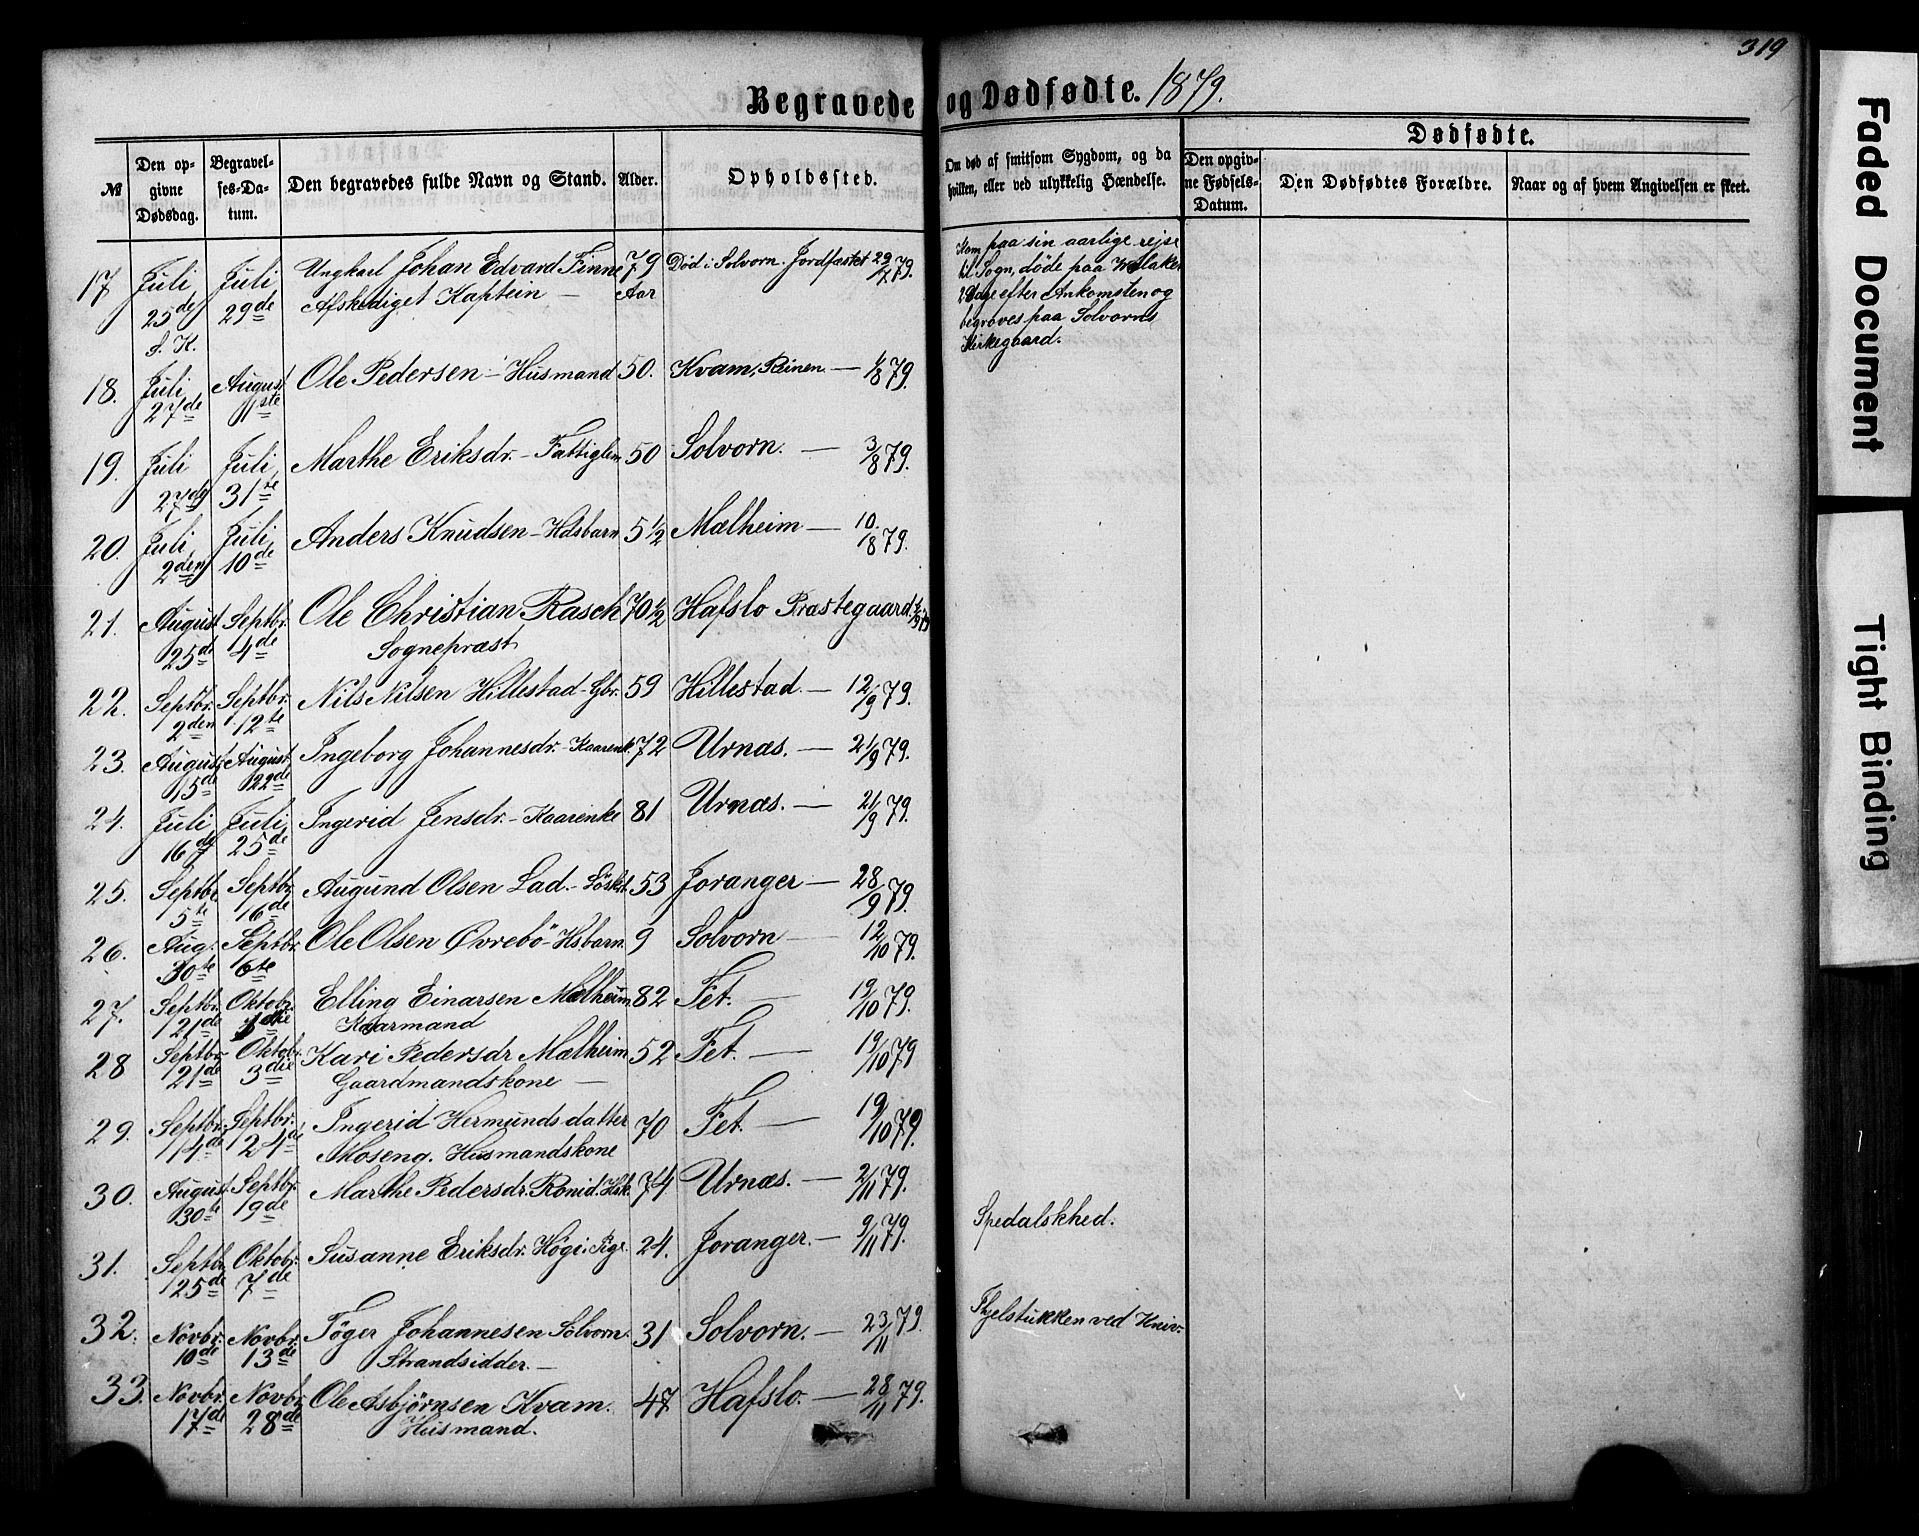 319
Begravede og Dødfødte. 1879.
№ Den opgivne Dødsdag. Begravelses-Datum. Den begravedes fulde Navn og Stand. Alder. Opholdssted. Om død af smitsom Sygdom, og da hvilken, eller ved ulykkelig Hændelse. Dødfødte. Den opgivne Fødsels-Datum. Den Dødfødtes Forældre. Naar og af hvem Angivelsen er skeet.
17 Juli 25de Juli 29de Ungkarl Johan Edvard Finne 79 Aar Død i Solvorn. Jordfæstet 29/7 79.
Afskediget Kaptein —
Kom paa sin aarlige rejse
til Sogn, døde paa
Dage efter Ankomsten og
begroves paa Solvorns
Kirkegaard.
18. Juli 27de August 1ste Ole Pedersen - Husmand 50. Kvam, Reinen — 1/8 79.
19. Juli 27de Juli 31te Marthe Eriksdr. - Fattiglem 50 Solvorn. — 3/8 79.
20. Juli 2den Juli 10de Anders Knudsen - Hdsbarn 5 1/2 Mælheim — 10/8 79.
21. August 25de Septbr. 4de Ole Christian Rasch 70 1/2 Hafslo Præstegaard
Sognepræst
22. Septbr. 2den Septbr. 12te Nils Nilsen Hillestad - Gbr. 59 Hillestad. — 12/9 79.
23. August 15de August 22de Ingeborg Johannesdr. - Kaarenk. 72 Urnæs. — 21/9 79.
24. Juli 16de Juli 25de Ingerid Jensdr. - Kaarenke 81 Urnæs. — 21/9 79.
25. Septbr. 5te Septbr. 16de Augund Olsen Lad. - 53 Joranger — 28/9 79.
26. Aug. 30te Septbr. 6te Ole Olsen Øvrebö - Hsbarn. 9 Solvorn — 12/10 79.
27. Septbr. 21de Oktobr. Elling Einarsen Mælheim 82 Fet. — 19/10 79.
Kaarmand
28 Septbr. 21de Oktobr. 3die Kari Pedersdr Mælheim 52 Fet. — 19/10 79
Gaardmandskone —
29. Septbr. 14de Septbr. 24de Ingerid Hermundsdatter 70 Fet. — 19/10 79.
Moseng. Husmandskone
30. August 30te Septbr. 9de Marthe Pedersdr. Ronid. Hsk. 74 Urnæs. — 2/11 79.
31. Septbr. 25de Oktobr. 7de Susanne Eriksdr. Högi. Pige. 24. Joranger. — 9/11 79. Spedalskhed.
32. Novbr. 10de Novbr. 13de Töger Johannesen Solvorn. 31 Solvorn. — 23/11 79. Ihjelstukken ved Kniv.
Strandsidder. —
33. Novbr. 17de Novbr. 28de Ole Asbjørnsen Kvam. 47 Hafslo. — 28/11 79.
Husmand.
Faded Document
Tight Binding